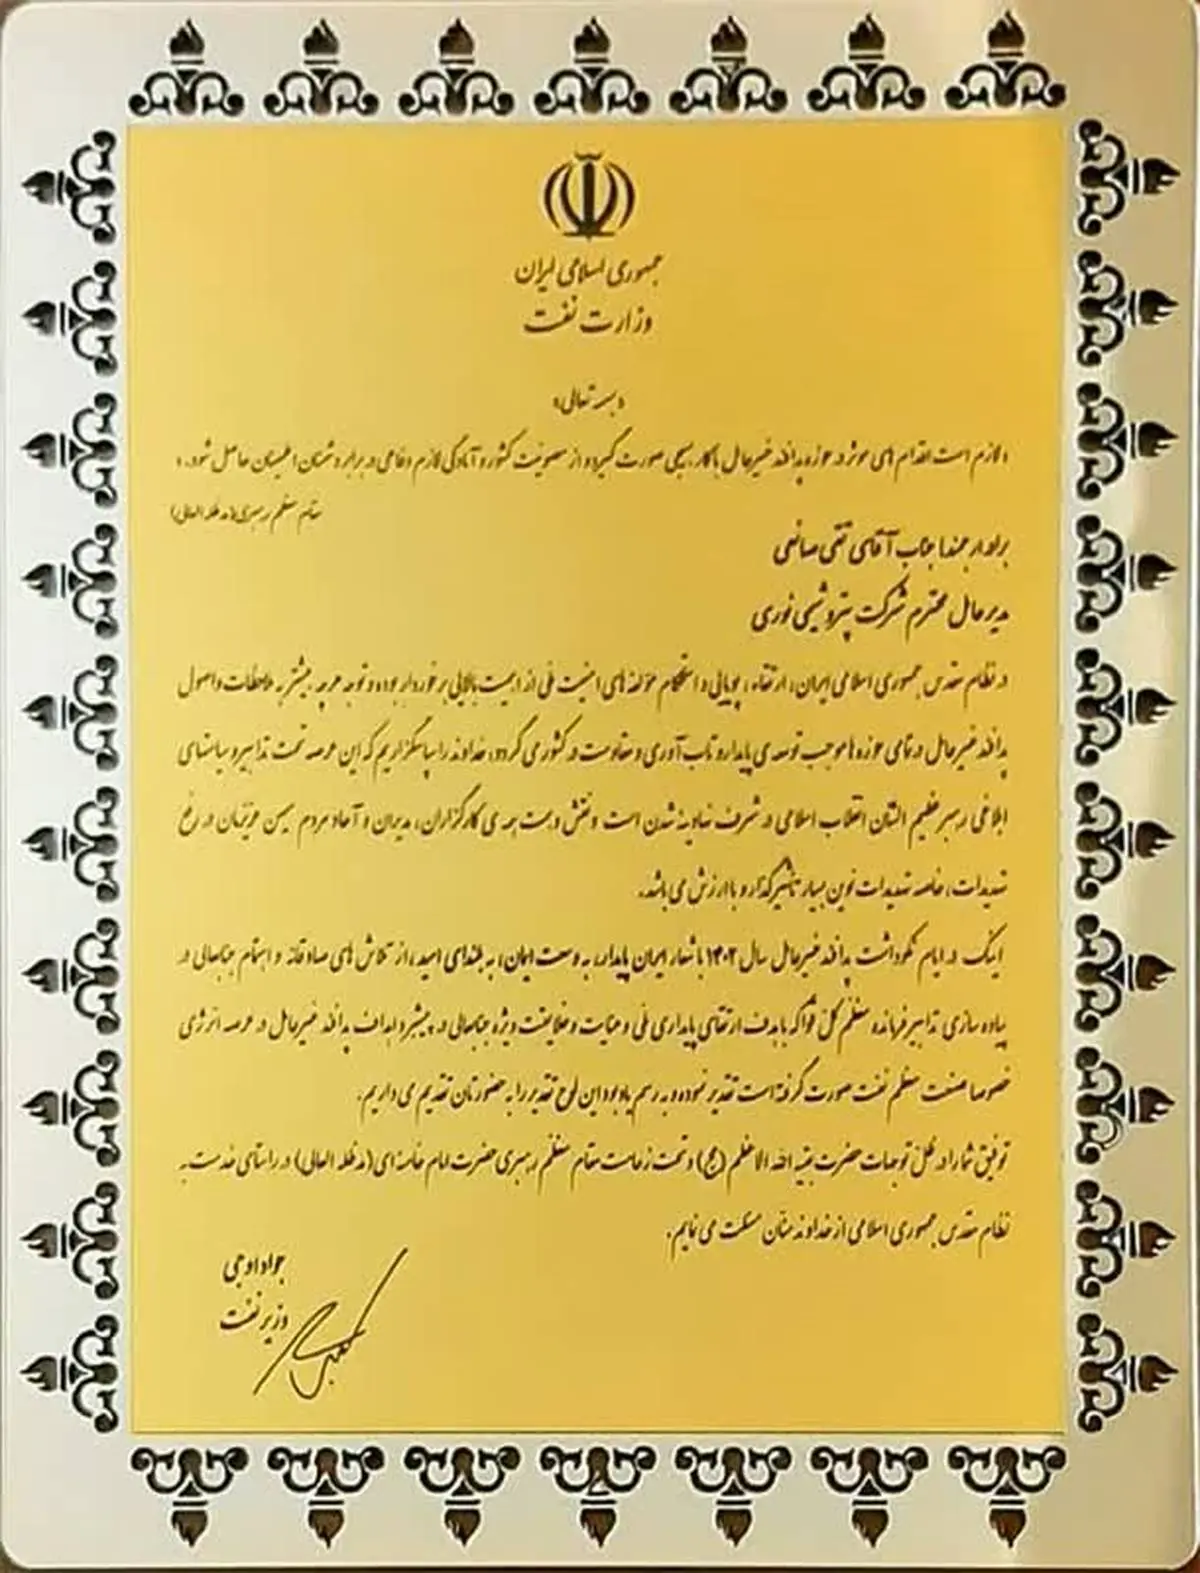 جمهوری اسلامی ایران
وزارت نفت
«بسمه تعالی»
«لازم است اقدام های موثر در حوزه پدافند غیرعامل با کار بسیجی صورت گیرد و از مصونیت کشور و آمادگی لازم دفاعی در برابر دشمنان اطمینان حاصل شود.»
مقام معظم رهبری(مدظله العالی)
برادر ارجمند؛ جناب آقای تقی صانعی
مدیرعامل محترم شرکت پتروشیمی نوری
در نظام مقدس جمهوری اسلامی ایران، ارتقاء، پویایی و استحکام مؤلفه های امنیت ملی از اهمیت بالایی برخوردار بوده و توجه هرچه بیشتر به ملاحظات و اصول
پدافند غیرعامل در تمامی حوزه ها موجب توسعه ی پایدار و تاب آوری و مقاومت در کشور می گردد، خداوند را سپاسگزاریم که این عرصه تحت تدابیر و سیاستهای
ابلاغی رهبر عظیم الشان انقلاب اسلامی در شرف نهادینه شدن است و نقش و همت همه ی کارگزاران، مدیران و آحاد مردم میهن عزیزمان در رفع
تهدیدات، خاصه تهدیدات نوین بسیار تأثیرگذار و با ارزش می باشد.
اینک در ایام نکوداشت پدافند غیرعامل سال ۱۴۰۲ با شعار ایران پایدار، به وسعت ایمان، به بلندای امید، از تلاش های صادقانه و اهتمام جنابعالی در
پیاده سازی تدابیر فرمانده معظم کل قوا که با هدف ارتقای پایداری ملی و عنایت و خلاقیت ویژه جنابعالی در پیشبرد اهداف پدافند غیرعامل در عرصه انرژی
خصوصا صنعت معظم نفت صورت گرفته است تقدیر نموده و به رسم یادبود این لوح تقدیر را به حضورتان تقدیم می داریم.
توفیق شما را در ظل توجهات حضرت بقیه الله الاعظم (عج) و تحت زعامت مقام معظم رهبری حضرت امام خامنه ای(مدظله العالی) در راستای خدمت به
نظام مقدس جمهوری اسلامی از خداوند منان مسئلت می نمایم.
جواد اوجی
وزیر نفت